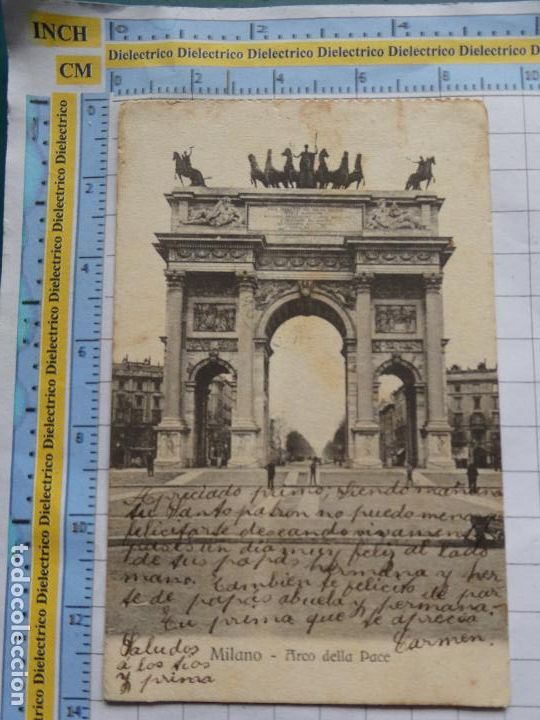 INCH 0 2 4 6
Dielectrico Dielectrico Dielectrico Dielectrico Dielectrico Dielectrico Dielectrico
CM 0 2 4 6 8 10
0
2
4
6
8
10
12
14
Dielectrico Dielectrico Dielectrico Dielectrico Dielectrico Dielectrico Dielectrico
Apreciado primo, siendo mañana
tu Santo patron no puedo menos
felicitarte deseando vivamente
pases un dia muy feliz al lado
de tus papás hermana y her
mano. Tambien te felicito de par
te de papás abuela y hermana.
Tu prima que te aprecia
Carmen.
Saludos
a los tios
y prima
Milano - Arco della Pace
todocoleccion.net